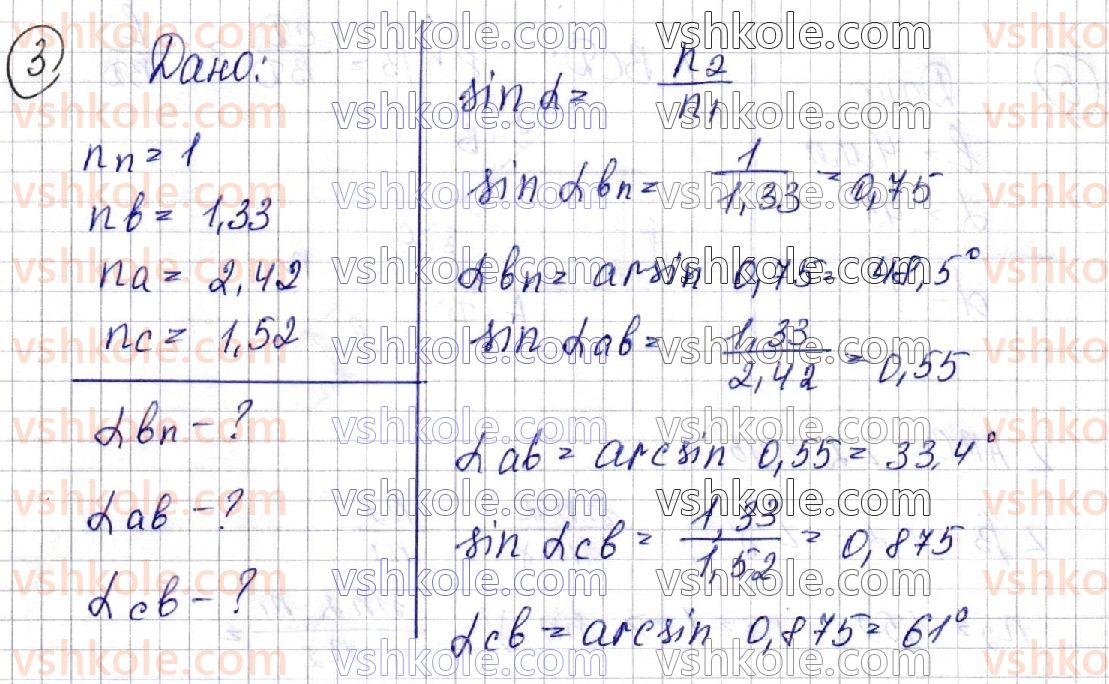 3 Дано:
nп = 1
nв = 1,33
nа = 2,42
nс = 1,52
αвп - ?
αав - ?
αсв - ?
sin α = n2/n1
sin αвп = 1/1,33 = 0,75
αвп = arsin 0,75 = 48,5°
sin αав = 1,33/2,42 = 0,55
αав = arcsin 0,55 = 33,4°
sin αсв = 1,33/1,52 = 0,875
αсв = arcsin 0,875 = 61°
vshkole.com